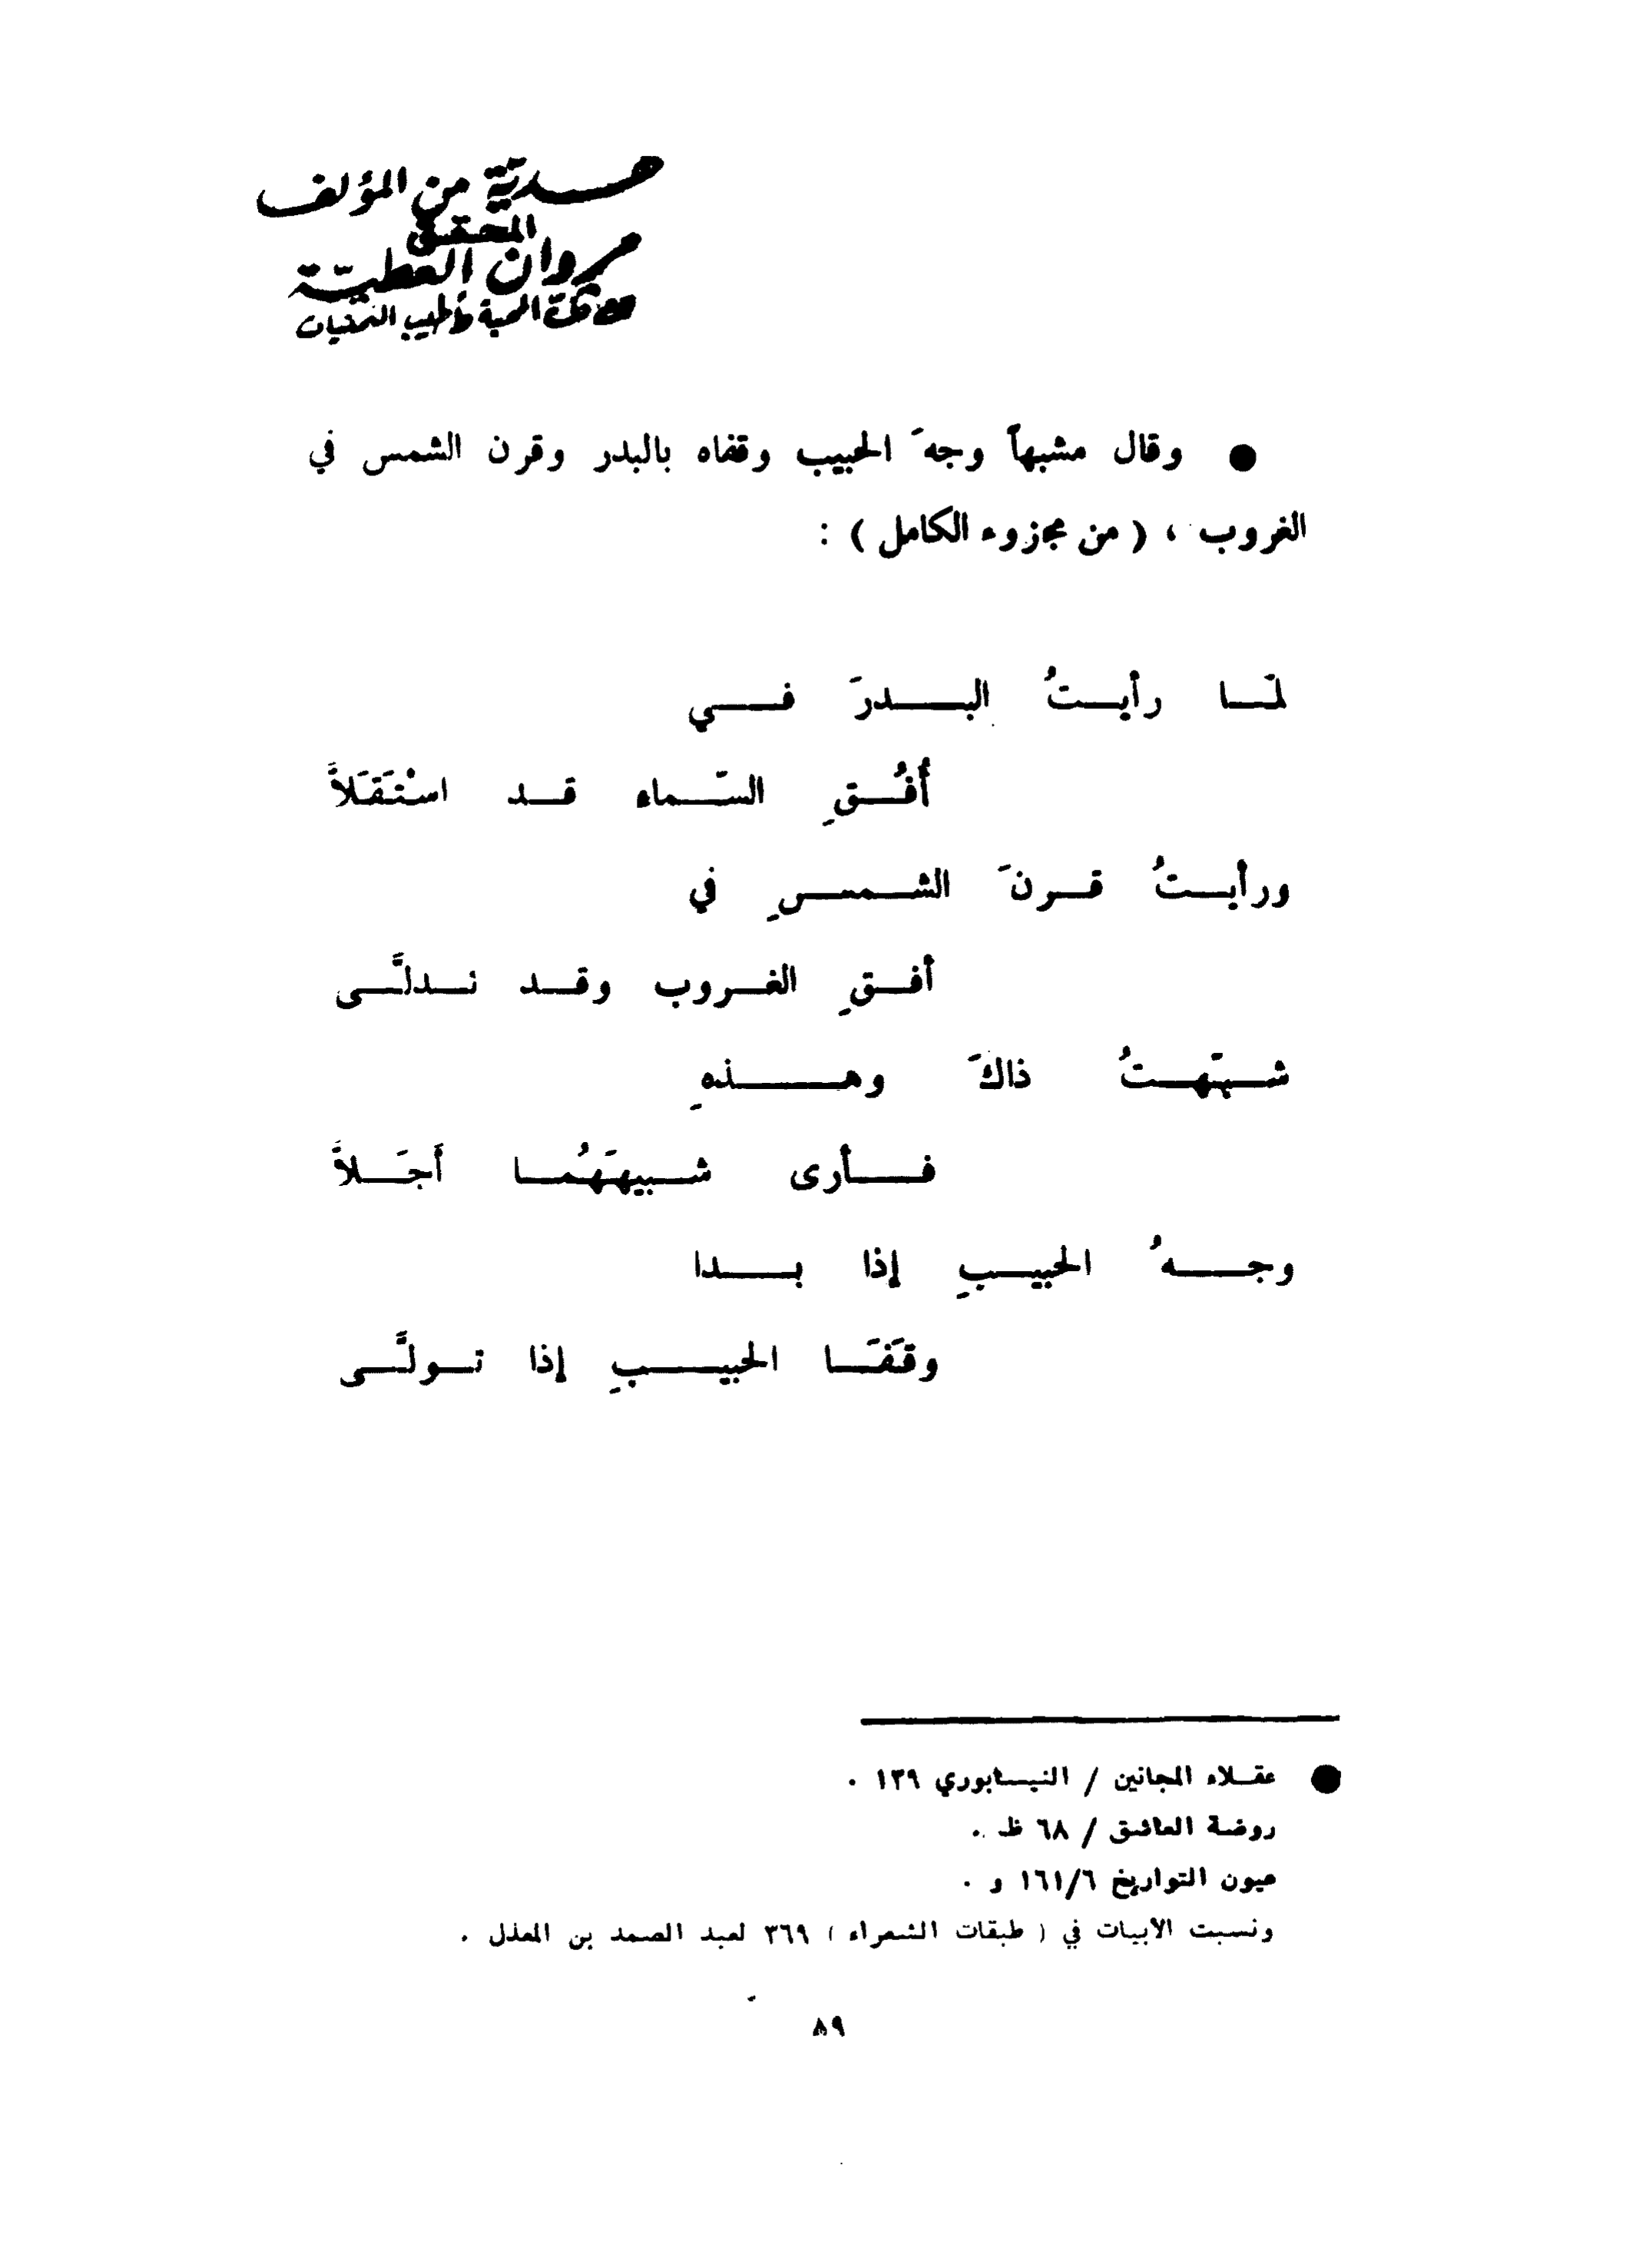 هديّة من المؤلف
المحقق
مروان العطيّة
المحبة وأطيب التمنيات
● وقال مشبهاً وجهَ الحبيب وقفاه بالبدر وقرن الشمس في
الغروب ، ( من مجزوء الكامل ) :
لمّا رأيتُ البدرَ في
أُفُقِ السّماء قد اسْتَقَلاَّ
ورأيتُ قرنَ الشمسِ في
أفقِ الغروب وقد تدلَّى
شبّهتُ ذاكَ وهذهِ
فأرى شبيهَهُما أجَلاَّ
وجهُ الحبيبِ إذا بدا
وقَفَا الحبيبِ إذا تولَّى
● عقلاء المجانين / النيسابوري ١٣٩ .
روضة العاشق / ٦٨ ظ .
عيون التواريخ ١٦١/٦ و .
ونسبت الأبيات في ( طبقات الشعراء ) ٣٦٩ لعبد الصمد بن المعذل .
٨٩